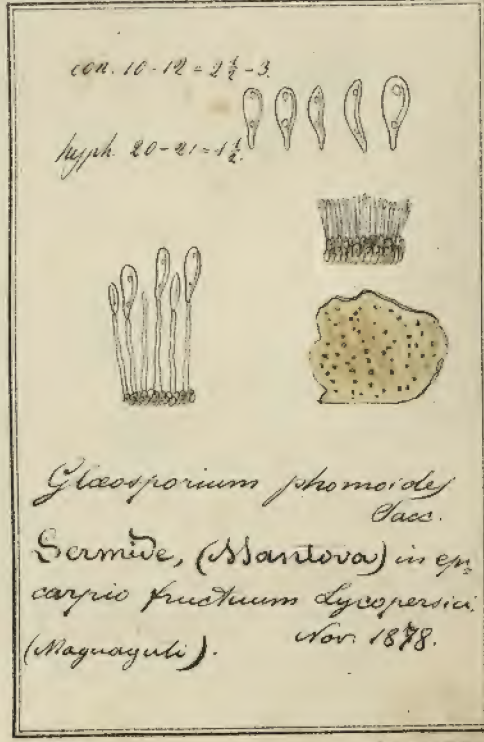 con. 10-12 = 2½-3.
hyph. 20-21 = 1½.
Glœosporium phomoides
Sacc.
Sermide, (Mantova) in epi=
carpio fructuum Lycopersici.
Nov. 1878.
(Magnaguti).